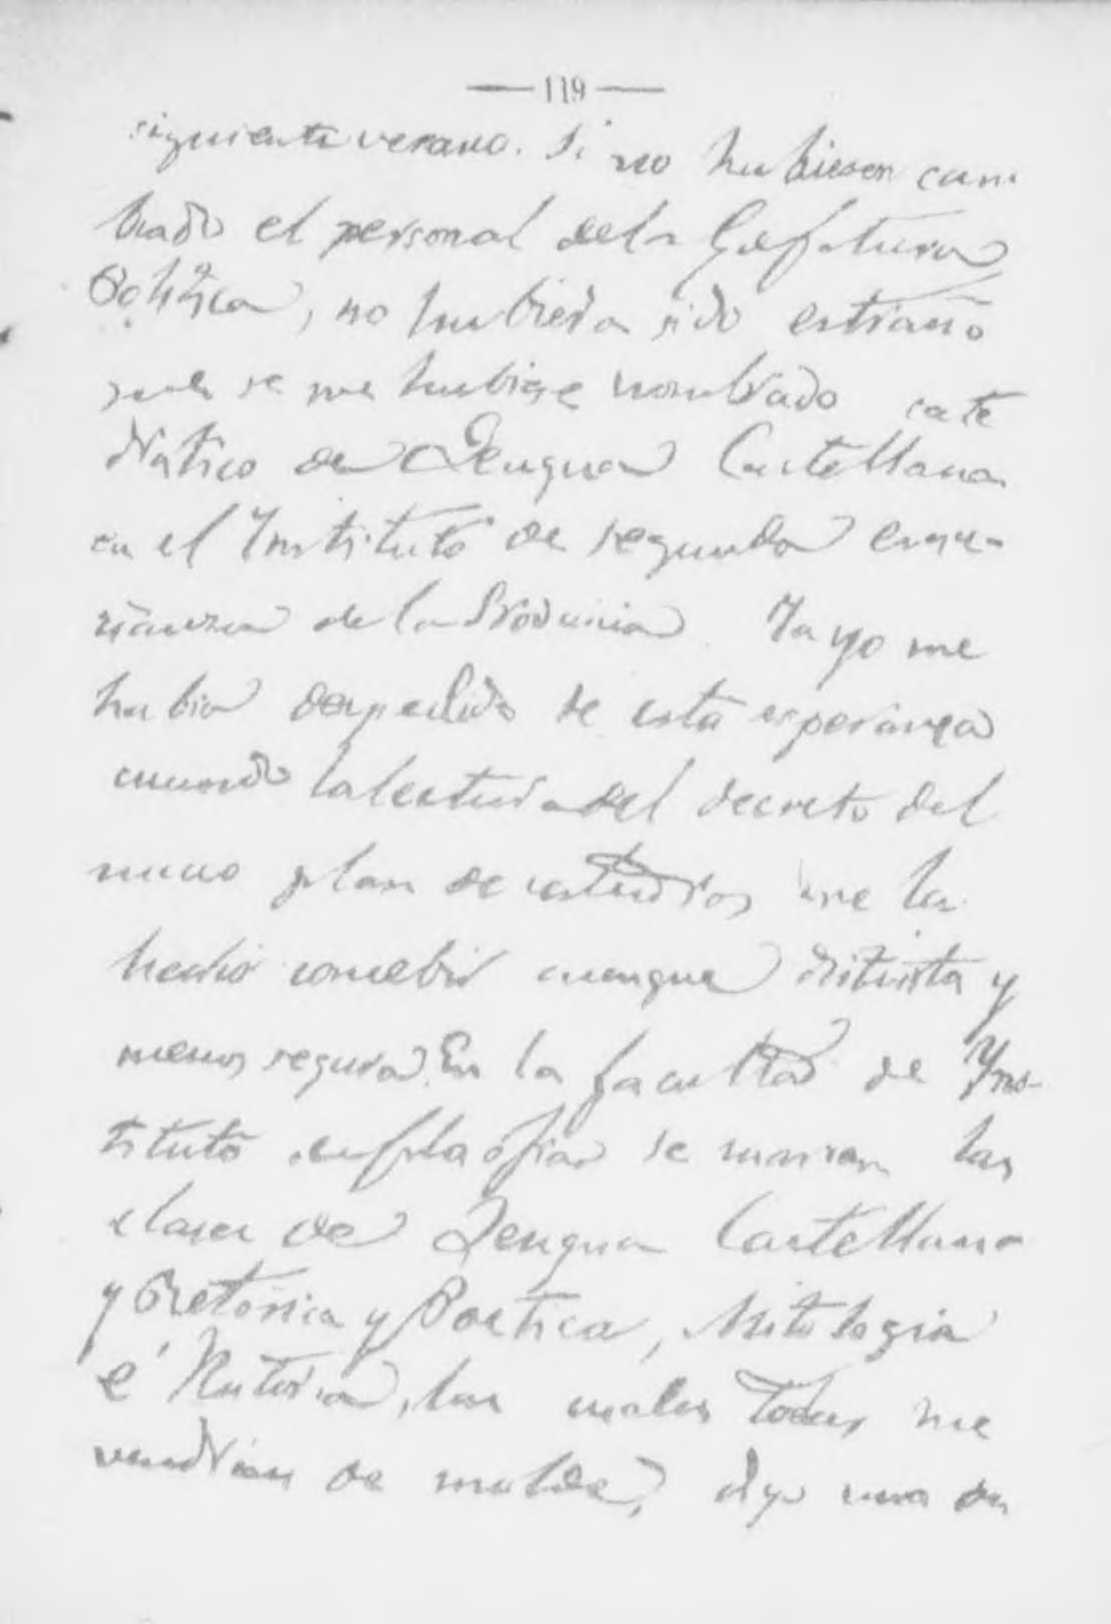 — 119 —
siguiente verano. Si no hubiesen cam
biado el personal de la Gefatura
Politica, no hubiera sido estraño
que se me hubiese nombrado cate
dratico de Lengua Castellana
en el Instituto de segunda ense-
ñanza de la Provincia. Ya yo me
habia despedido de esta esperanza
cuando la lectura del decreto del
nuevo plan de estudios me la
hecho concebir aunque distinta y
menos segura. En la facultad de Yns-
tituto de filosofia se marcan las
clases de Lengua Castellana
y Retorica y Poetica, Mitologia
é Historia, las cuales todas me
vendrian de molde, digo una de